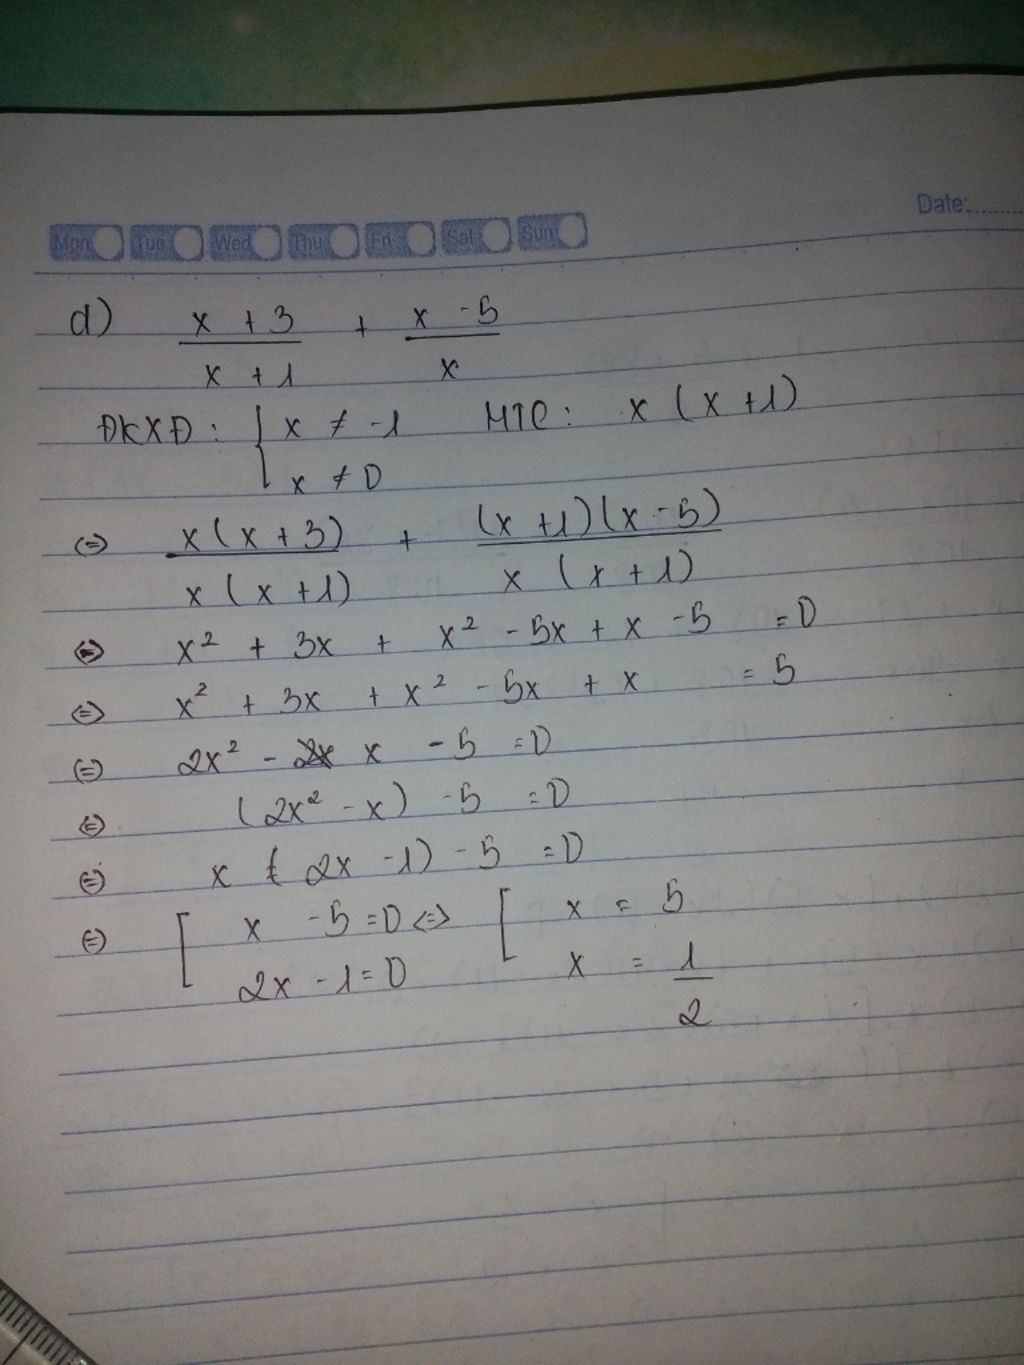 Date:
Mon Tue Wed Thu Fri Sat Sun
d) (x + 3)/(x + 1) + (x - 5)/x
ĐKXĐ: { x ≠ -1 MTC: x (x + 1)
x ≠ 0
<=> x(x + 3)/x(x + 1) + (x + 1)(x - 5)/x(x + 1)
<=> x² + 3x + x² - 5x + x - 5 = 0
<=> x² + 3x + x² - 5x + x = 5
<=> 2x² - x - 5 = 0
<=> (2x² - x) - 5 = 0
<=> x (2x - 1) - 5 = 0
<=> [ x - 5 = 0 <=> [ x = 5
2x - 1 = 0 x = 1/2